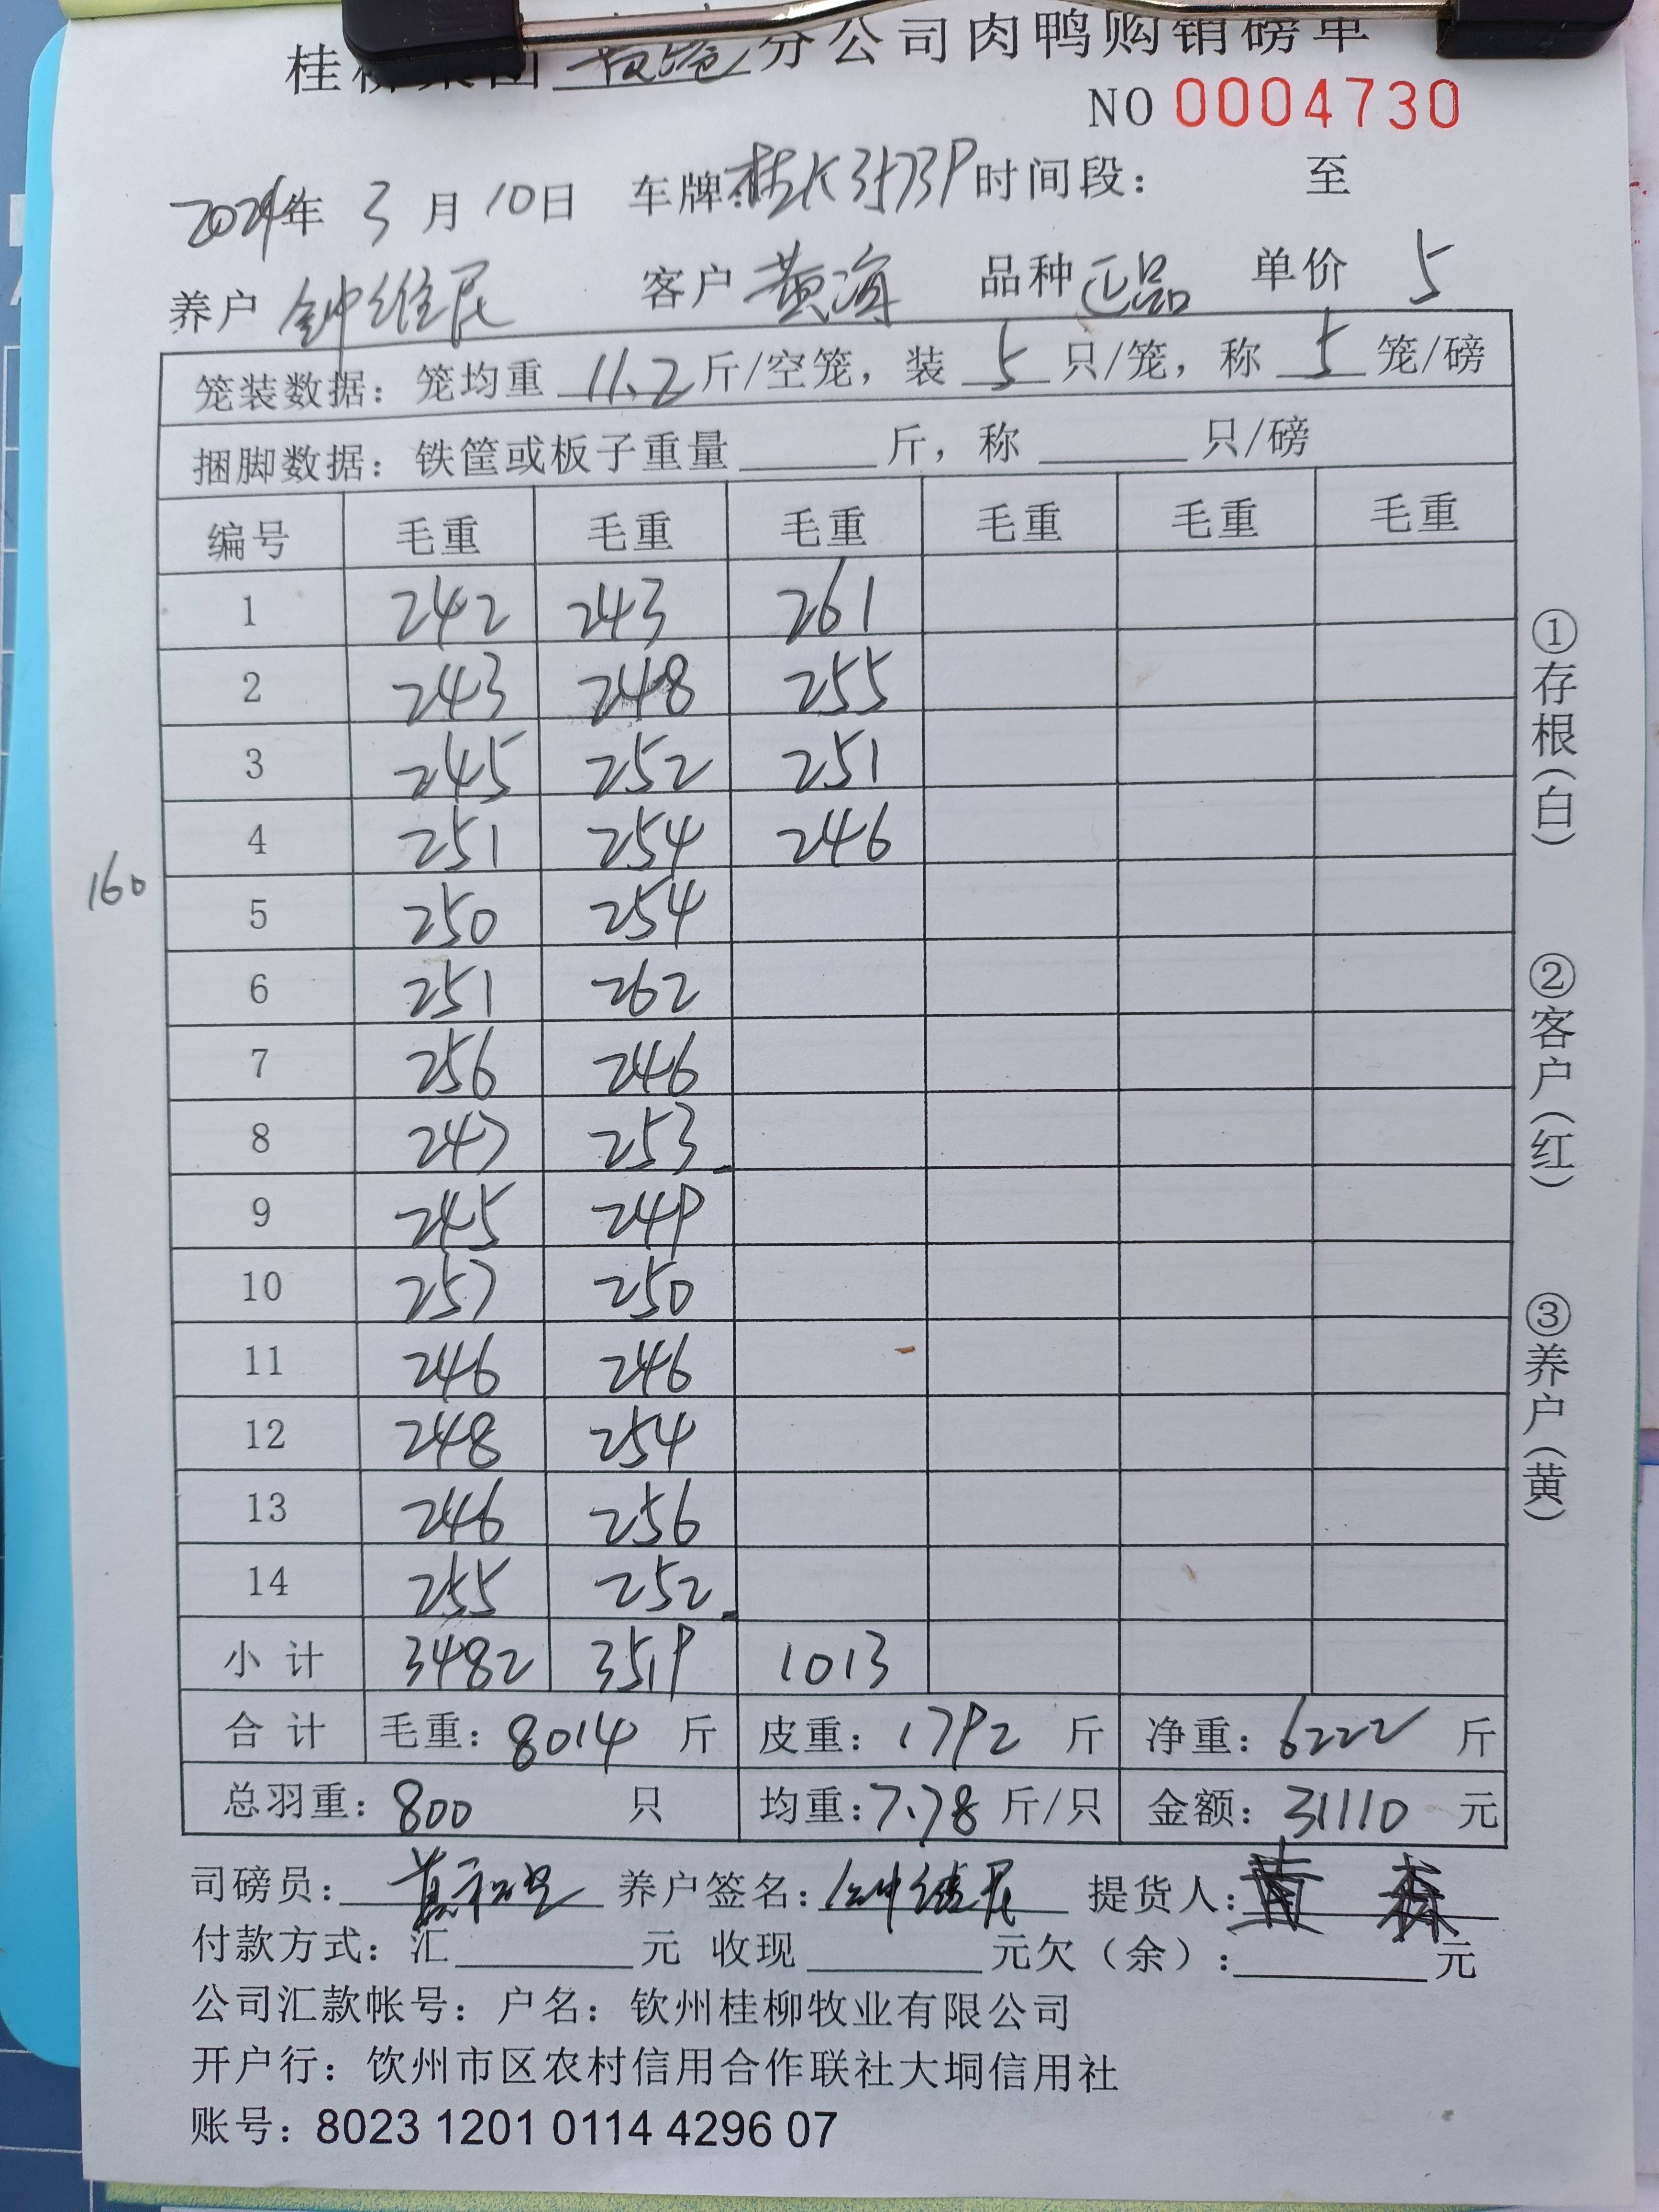 桂柳集团 分公司肉鸭购销磅单
NO 0004730
2024年 3 月 10日 车牌: 时间段： 至
养户 钟维民 客户 黄海 品种 正品 单价 5
笼装数据：笼均重 11.2 斤/空笼，装 5 只/笼，称 5 笼/磅
捆脚数据：铁筐或板子重量 斤，称 只/磅
编号 毛重 毛重 毛重 毛重 毛重 毛重
1 242 243 261
2 243 248 255
3 245 252 251
4 251 254 246
160
5 250 254
6 251 262
7 256 246
8 247 253
9 245 249
10 257 250
11 246 246
12 248 254
13 246 256
14 255 252
小计 3482 3519 1013
合计 毛重：8014 斤 皮重：1792 斤 净重：6222 斤
总羽重：800 只 均重：7.78 斤/只 金额：31110 元
司磅员： 养户签名：钟维民 提货人：黄
付款方式：汇 元 收现 元欠（余）： 元
公司汇款帐号：户名：钦州桂柳牧业有限公司
开户行：饮州市区农村信用合作联社大垌信用社
账号：8023 1201 0114 4296 07
①存根（白）
②客户（红）
③养户（黄）